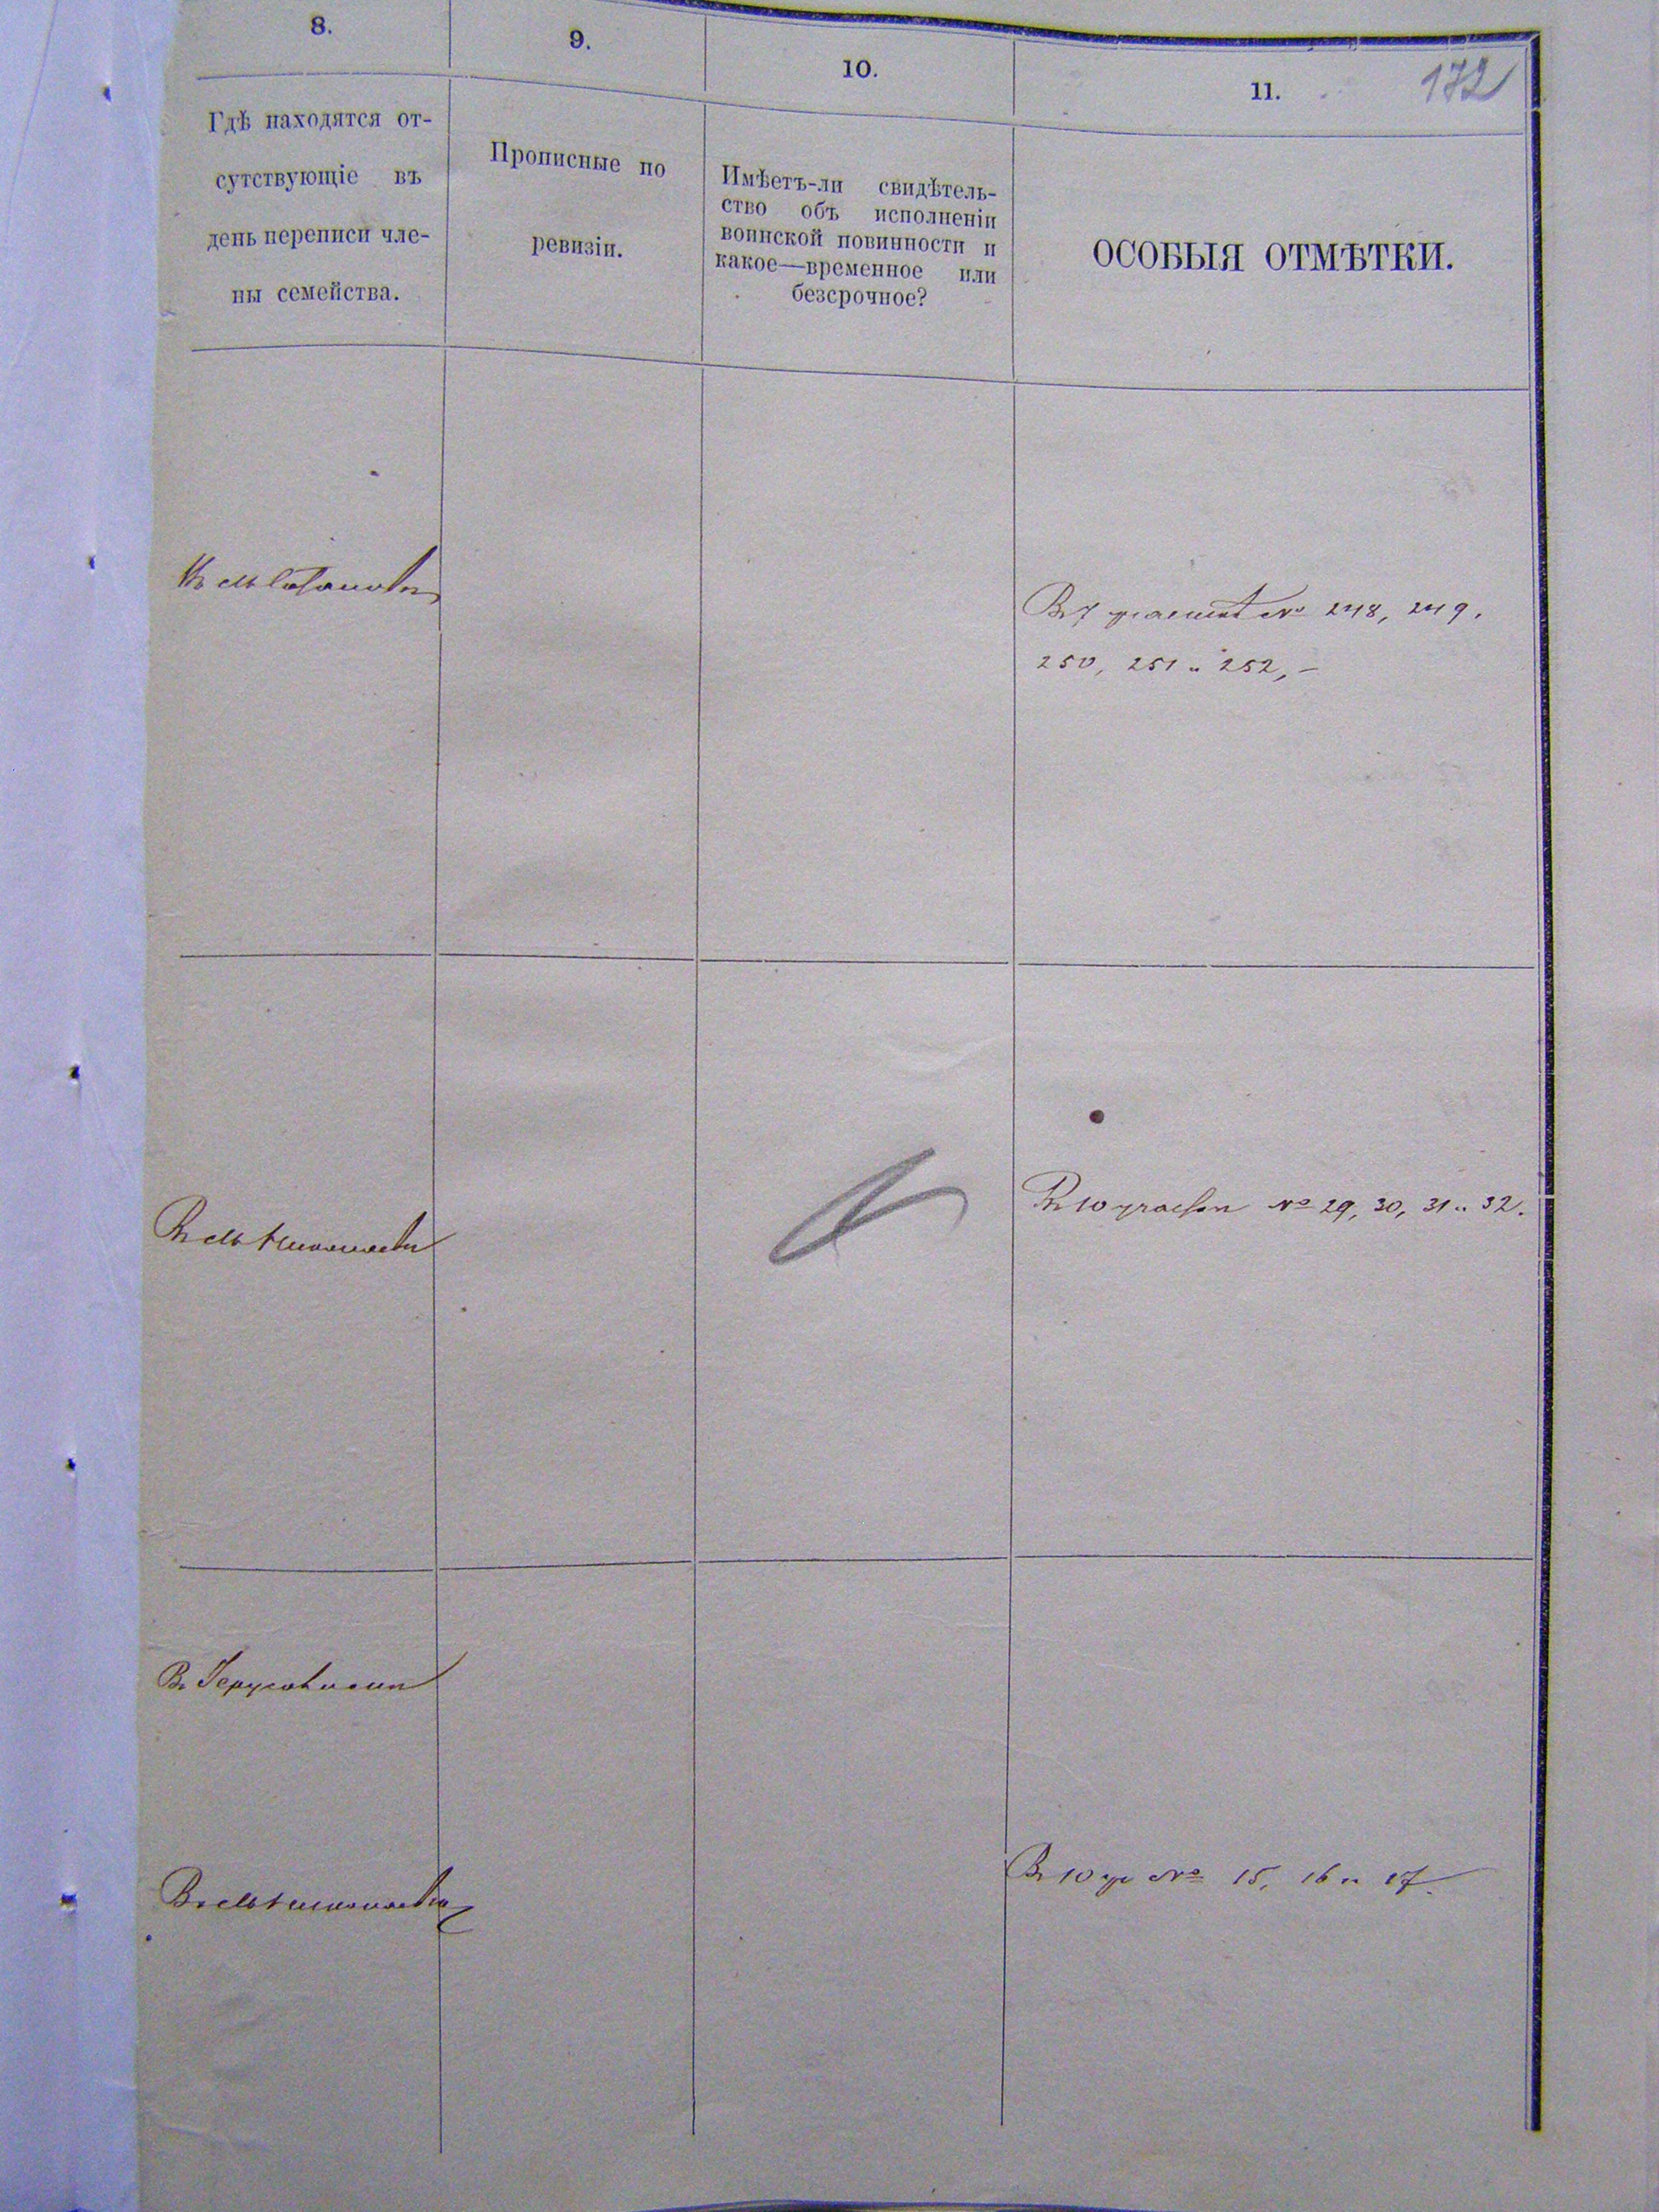 8.
9.
10.
11.
172
Гдѣ находятся от-
сутствующіе въ
день переписи чле-
ны семейства.
Прописные по
ревизіи.
Имѣетъ-ли свидѣтель-
ство объ исполненіи
воинской повинности и
какое—временное или
безсрочное?
ОСОБЫЯ ОТМѢТКИ.
Въ 7 участкѣ № 248, 249,
250, 251 и 252, –
Въ 10 № 29, 30, 31 и 32.
Въ Іерусалимѣ
Въ 10 уч № 15, 16 и 17.